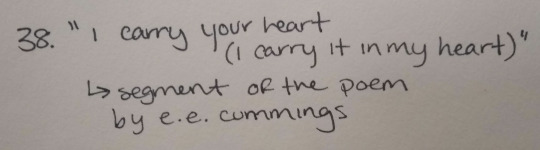 38. "i carry your heart
(i carry it in my heart)"
↳ segment of the poem
by e.e. cummings